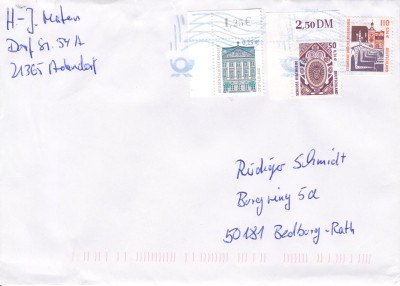 H.-J. Maten
Dorf Str. 54 A
21365 Adendorf
1.25€
2,50 DM
50
110
Rüdiger Schmidt
Borgring 5a
50181 Bedburg-Rath